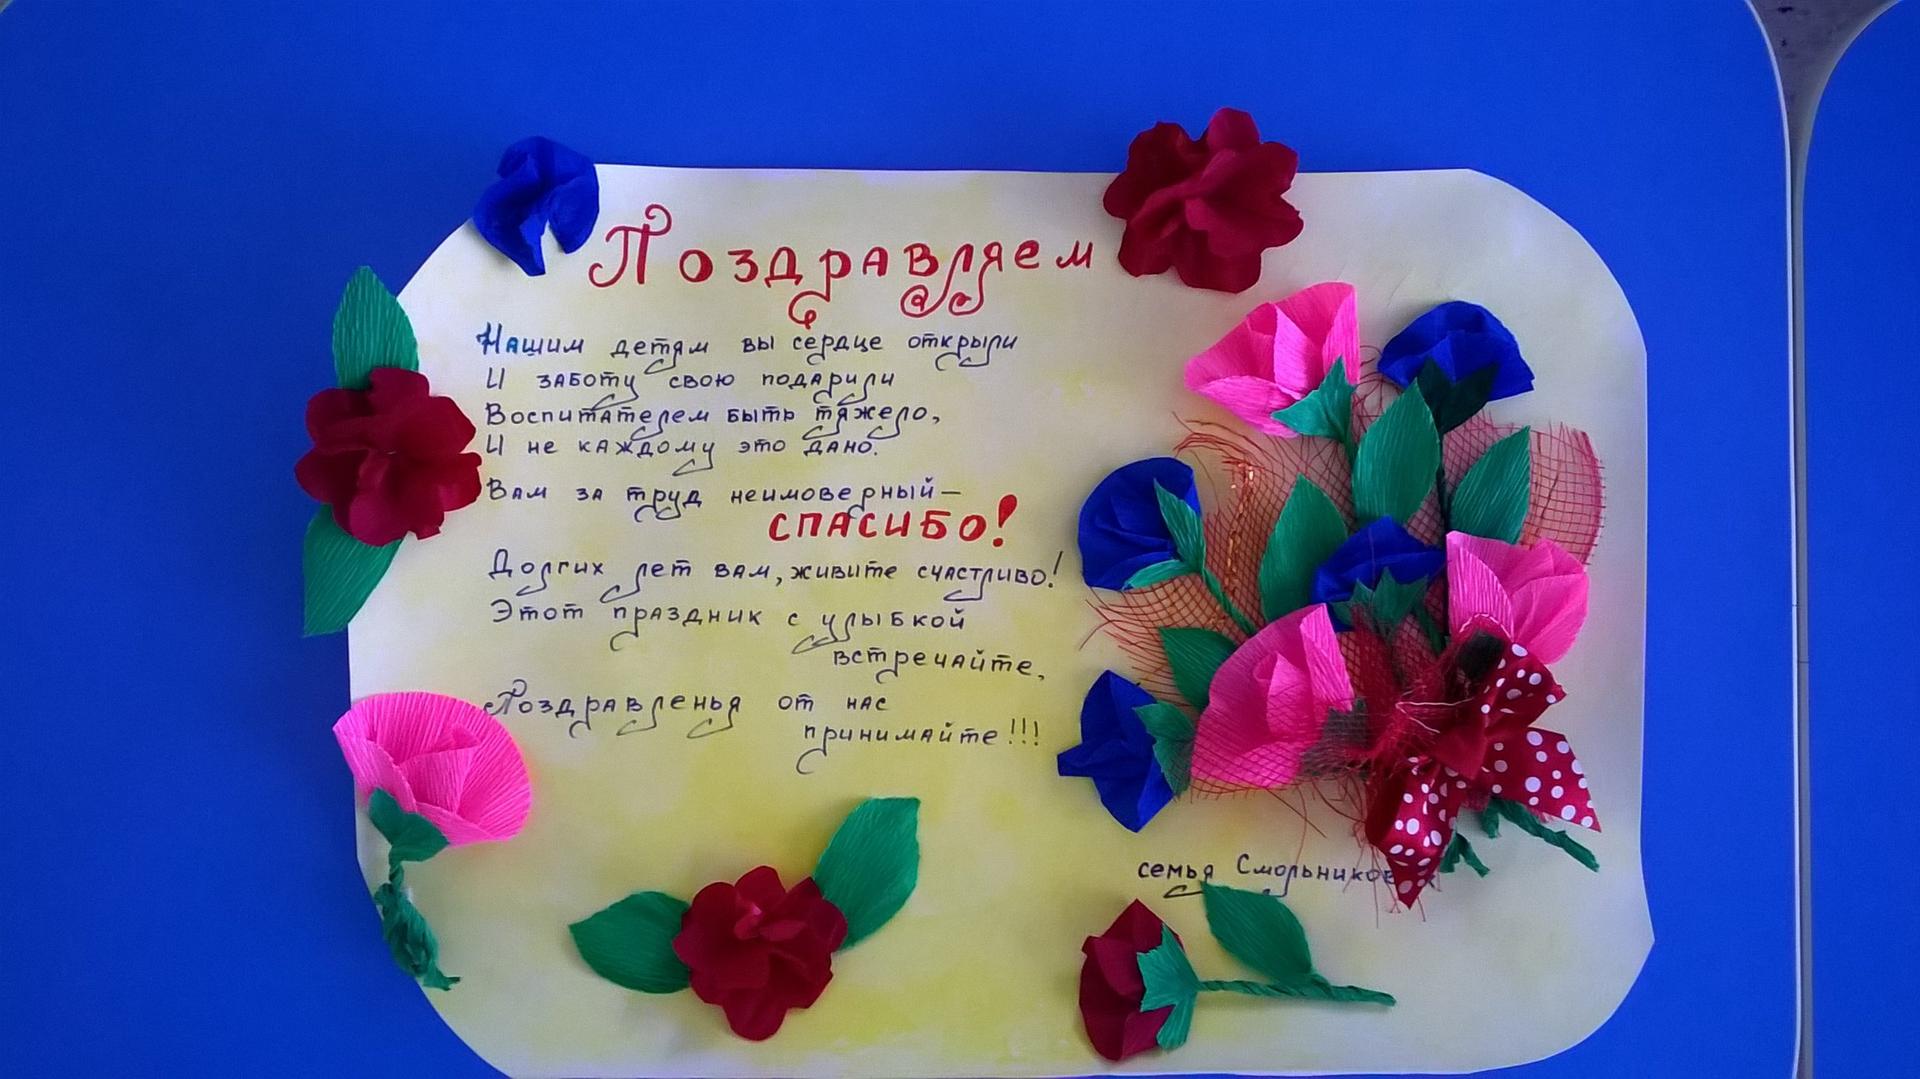 Поздравляем
Нашим детям вы сердце открыли
И заботу свою подарили
Воспитателем быть тяжело,
И не каждому это дано.
Вам за труд неимоверный —
СПАСИБО!
Долгих лет вам, живите счастливо!
Этот праздник с улыбкой
встречайте,
Поздравленья от нас
принимайте!!!
семья Смольниковых